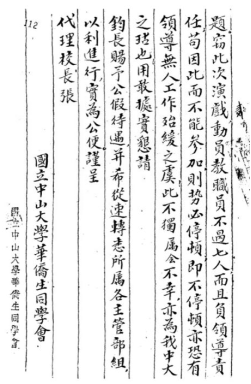 題，窃此次演戲動員教職員不過七人而且負領導責
任苟因此而不能参加則势必停頓即不停頓亦恐有
領導無人工作殆緩之虞此不獨属会不幸亦為我中大
之玷也用敢據實懇請
鈞長賜予公假待遇并希從速轉志所属各主管部組，
以利進行，實為公便謹呈
代理校長張
國立中山大學華僑生同學會
國立中山大學華僑生同學會
112